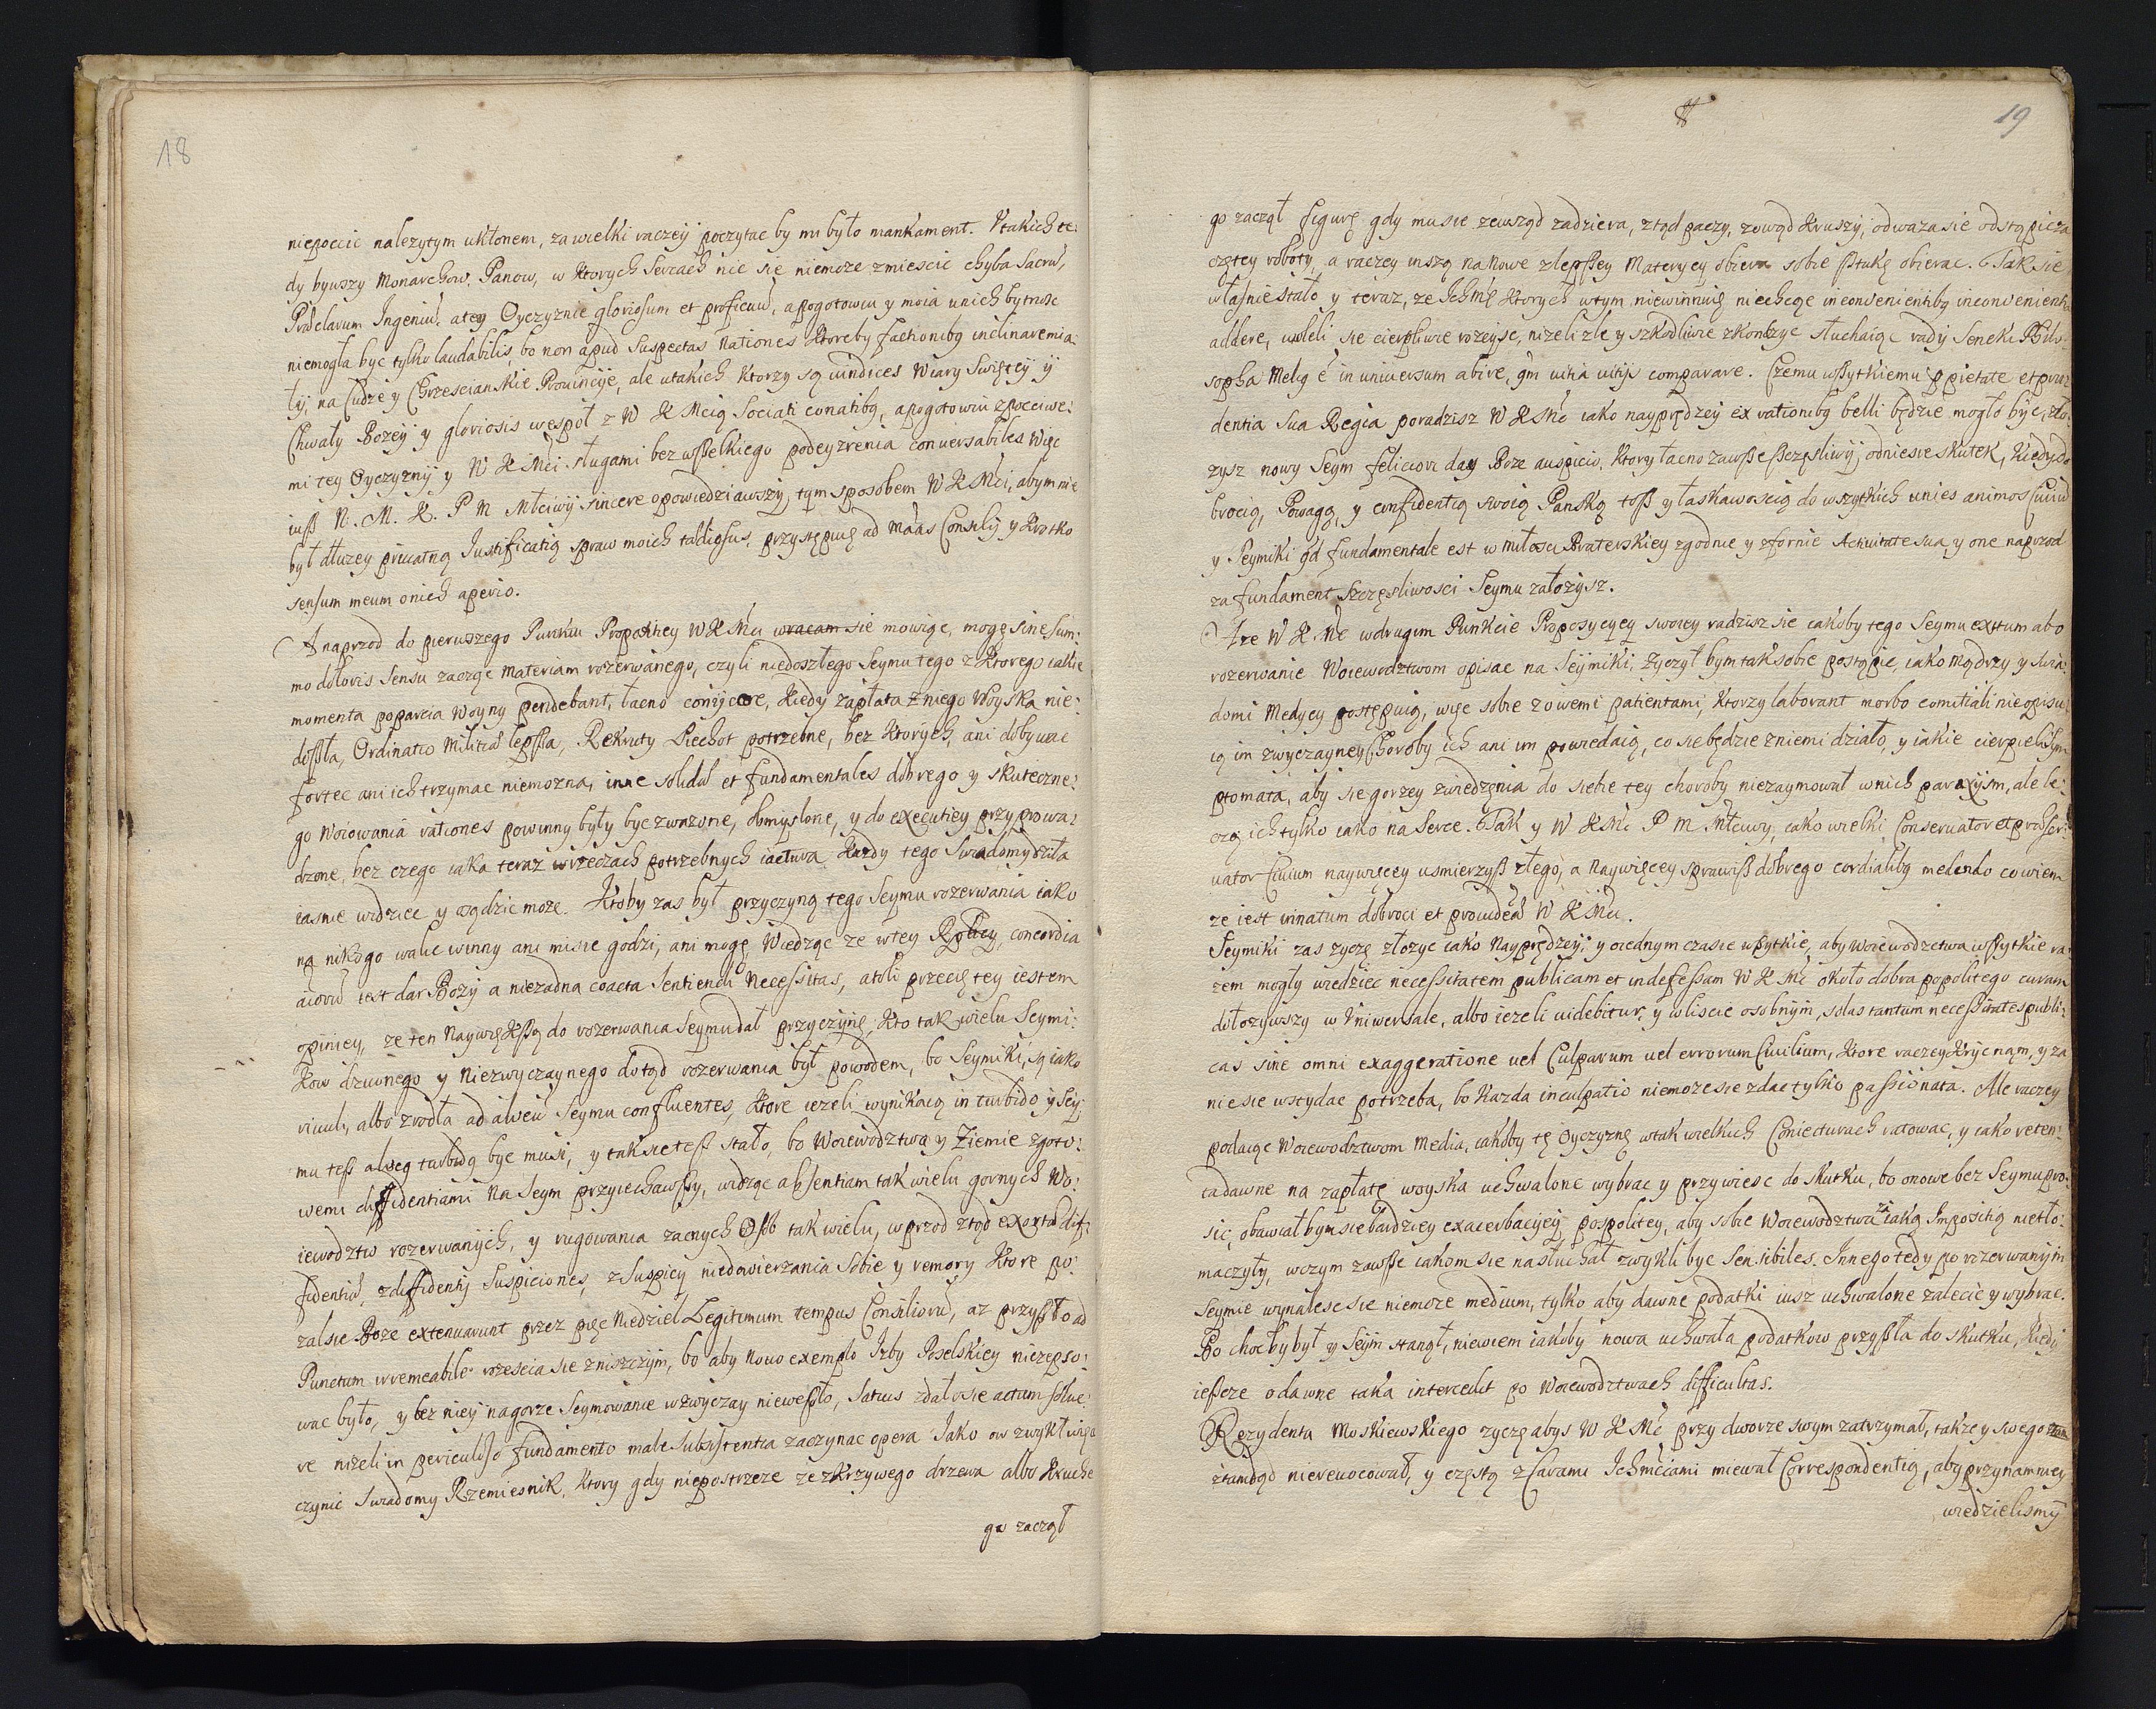 18
niepoccic nalezytym ukłonem, za wielki raczeÿ poczytac by mi było mankament. Vtakich te:
dy bywszy Monarchow, Panow, w ktorych Sercach nic się niemoze zmiescic chyba Sacrū,
Præclarum Ingeniū, a tey Oyczyznie gloriosum et proficuū, a pogotowiu y moia unich bytnosc
niemogła byc tylko laudabilis, bo non apud Suspectas Nationes ktoreby factionibg inclinaremia:
łÿ, na Cudze y Chrzescianskie Prouincÿe, ale utakich ktorzy są uindices Wiary Swiętey ÿ
Chwały Bozeÿ y gloriosis wespoł z W K Mcią Sociati conatibg, apogotowiu zpocciwe:
mi tey Oyczyznÿ y W K Mci sługami bez wszelkiego podeyzrenia conuersabiles Więc
iusz N. M. K. P M Młciwÿ sincere opowiedziawszy, tym sposobem W K Mci, abym nie
był dłuzey priuatną Justificatią spraw moich tædiosus, przystępuię ad Mãas Consilÿ y krotko
sensum meum onich aperio.
A naprzod do pierwszego Punktu Propositiey W K Mci wracam się mowiąc, mogę sine sum:
mo doloris Sensu zacząc Materiam rozerwanego, czyli niedoszłego Seymu tego z ktorego iakie
momenta poparcia Woyny pendebant, łacno conÿcere, kiedy zapłata zniego Woyska nie:
doszła, Ordinatio Militiæ lepsza, Rekruty Piechot potrzebne, bez ktorych, ani dobywac
fortec ani ich trzymac niemozna, inne solidæ et fundamentales dobrego y skuteczne:
go Woiowania rationes powinny były byc zwazone, obmyslone, y do executiey przyprowa:
dzone, bez czego iaka teraz wrzeczach potrzebnych iactura kazdy tego Swiadomy dziła
iasnie widziec y sądzic moze. Ktoby zas był przyczyną tego Seymu rozerwania iako
na nikogo walic winny ani misie godzi, ani mogę Wiedząc ze wtey Rplicy, concordia
aiorū iest dar Bozy a niezadna coacta Sentiendi Necessitas, atoli przecię tey iestem
opiniey, ze ten Naywiększą do rozerwania Seymu dał przyczÿnę, kto tak wielu Seymi:
kow dziwnego y Niezwyczaynego dotąd rozerwania był powodem, bo Seymiki są iako
riuuli, albo zrodła ad alueū Seymu confluentes, ktore iezeli wynikaią in turbido y Sey:
mu tesz alueg turbidg byc musi, y tak sie tesz stało, bo Woiewodztwa y Ziemie zgoto:
wemi diffidentiami Na Seym przyiechawszy, widząc absentiam tak wielu gornych Wo:
iewodztw rozerwanÿch, y rugowania zacnych Osob tak wielu, wprzod ztąd exortæ dif:
fidentiæ, zdiffidentÿ Suspiciones, z Suspicÿ niedowierzania Sobie y remory ktore po:
zalsie Boze extenuarunt przez pięc Niedziel Legitimum tempus Consiliorū, az przyszło ad
Punctum irremeabile rozescia sie zniszczym, bo aby Nouo exemplo Izby Poselskiey niezepso:
wac było, y bez nieÿ nagorze Seymowanie wzwyczay nieweszło, Satius zdało sie actum solue:
re nizeli in periculoso fundamento male Subsistentia zaczynac opera Jako ow zwykł więc
czynic Swiadomy Rzemiesnik, ktory gdy niepostrzeze ze zkrzywego drzewa albo kruche
go zaczął
19
go zaczął figurę gdy mu sie zewsząd zadziera, ztąd paczy, zowąd kruszy, odwaza sie odstąpic za
czętey roboty, a raczey inszą na Nowe zlepszey Materyey obiera sobie sztukę obierac. Tak sie
własnie stało y teraz, ze Ichmę ktorych wtym niewinnuię niechcąc inconuenientibg inconuenientia
addere, woleli sie cierpliwie rozeysc, nizeli zle y szkodliwie zkonczyc słuchaiąc rady Seneki Philo:
sopha Melig ē in uniuersum abire, qm uitia uitijs comparare. Czemu wszytkiemu p pietate et pru:
dentia Sua Regia poradzisz W K Mc iako nayprędzey ex rationibg belli będzie mogło byc, zło:
zysz nowy Seym feliciori day Boze auspicio, ktory łacno zawsze szczęsliwÿ odniesie skutek, kiedy do
brocią, Powagą, y confidentią swoią Panską tosz y łaskawoscią do wszytkich unies animos Ciuiū
y Seymiki qd fundamentale est w miłosci Braterskiey zgodnie y sfornie Actiuitate sua, y one naprzod
za fundament szczęsliwosci Seymu załozysz.
A ze W K Mc wdrugim Punkcie Propozycyey swoiey radzisz sie iakoby tego Seymu exitum abo
rozerwanie Woiewodztwom opisac na Seymiki; zyczył bym tak sobie postąpic iako Mądrzy y Swia:
domi Medycy postępuią, więc sobie zowemi patientami, ktorzy laborant morbo comitiali nieopisu
ią im zwyczayney Choroby ich ani im powiedaią, co sie będzie zniemi działo, y iakie cierpieli Sym
ptomata, aby sie gorzey zwiedzenia do siebie tey choroby niezaymował wnich paraxysm, ale le:
czą ich tylko iako na Serce. Tak y W K Mc P M Młciwy, iako wielki Conseruator et præser:
uator Ciuium naywięcey usmierzysz złego, a Naywięcey sprawisz dobrego cordialibg medendo co wiem
ze iest innatum dobroci et prouidēæ W K Mci.
Seymiki zas zyczę złozyc iako Nayprędzeÿ, y oiednym czasie wszytkie, aby Woiewodztwa wszytkie ra:
zem mogły wiedziec necessitatem publicam et indefessam W K Mc około dobra popolitego curam
dołozywszy w Vniwersale, albo iezeli uidebitur, y wliscie osobnÿm, solas tantum necessitates publi:
cas sine omni exaggeratione uel Culparum uel errorum Ciuilium, ktore raczey kryc nąm, y za
nie sie wstydac potrzeba, bo kazda inculpatio niemoze sie zdac tylko passionata. Ale raczey
podaiąc Woiewodztwom Media, iakoby tę Oyczyznę wtak wielkich Coniecturach ratowac, y iako reten:
ta dawne na zapłatę woyska uchwalone wybrac y przywiesc do skutku, bo onowe bez Seymu pro:
sic, obawiał bym sie bardziey exacerbacyey pospolitey, aby sobie Woiewodztwa za iaką Impositią nietło:
maczyły, wczym zawsze iakom sie nasłuchał zwykli byc Sensibiles. Innego tedy po rozerwanym
Seymie wynalesc sie niemoze medium, tylko aby dawne podatki iusz uchwalone zalecic y wybrac.
Bo chocby był y Seym stanął, niewiem iakoby nowa uchwała podatkow przyszła do skutku, kiedy
ieszcze o dawne taka intercedit po Woiewodztwach difficultas.
Rezydenta Moskiewskiego zyczę abys W K Mc przy dworze swym zatrzymał, takze y swego
ztamtąd nierevocował, y częstą z Carami Ichmciami miewał Correspondentią, aby przynamniey
wiedzielismÿ